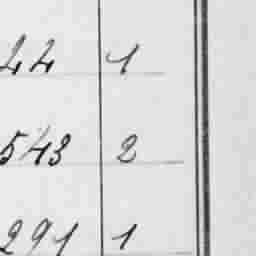 44 1
543 2
291 1